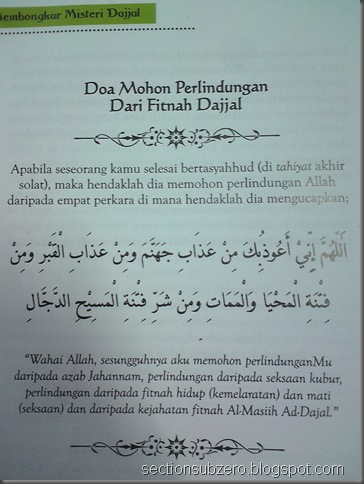 Membongkar Misteri Dajjal
Doa Mohon Perlindungan
Dari Fitnah Dajjal
Apabila seseorang kamu selesai bertasyahhud (di tahiyat akhir
solat), maka hendaklah dia memohon perlindungan Allah
daripada empat perkara di mana hendaklah dia mengucapkan;
اَللّٰهُمَّ إِنِّيْ أَعُوْذُبِكَ مِنْ عَذَابِ جَهَنَّمَ وَمِنْ عَذَابِ الْقَبْرِ وَمِنْ
فِتْنَةِ الْمَحْيَا وَالْمَمَاتِ وَمِنْ شَرِّ فِتْنَةِ الْمَسِيْحِ الدَّجَّالِ
"Wahai Allah, sesungguhnya aku memohon perlindunganMu
daripada azab Jahannam, perlindungan daripada seksaan kubur,
perlindungan daripada fitnah hidup (kemelaratan) dan mati
(seksaan) dan daripada kejahatan fitnah Al-Masiih Ad-Dajal."
sectionsubzero.blogspot.com